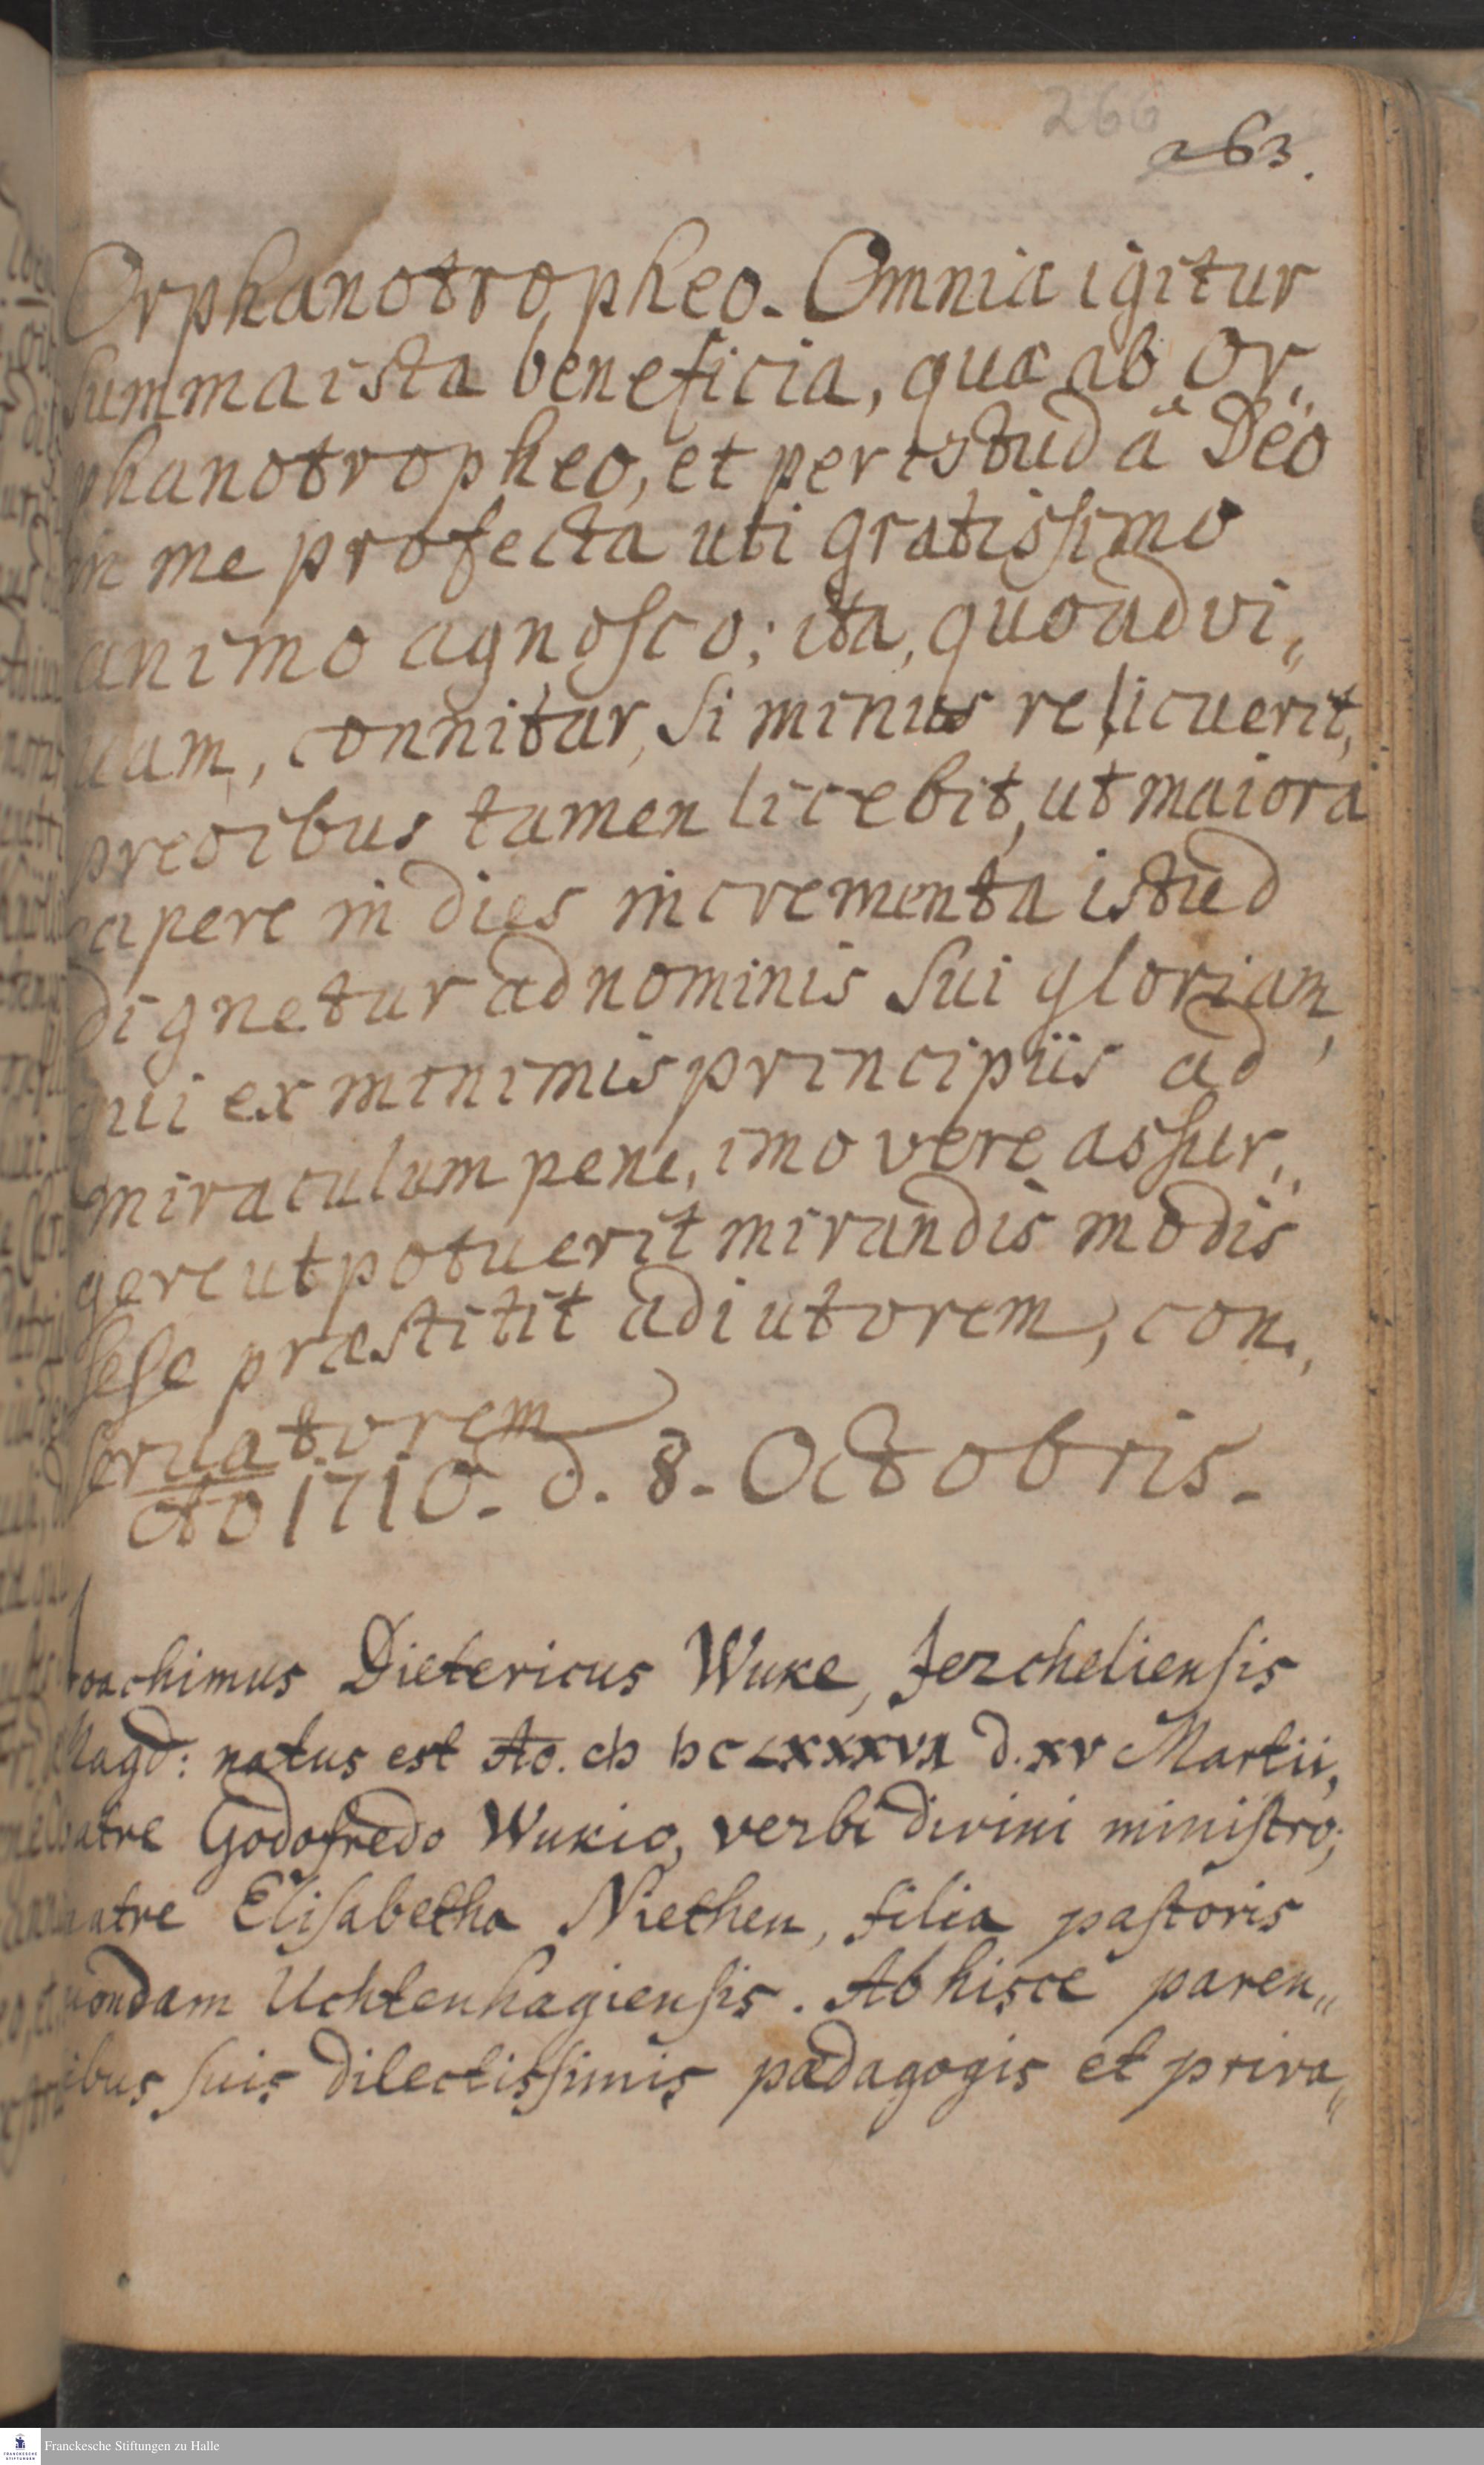 266
263.
Orphanotropheo. Omnia igitur
summa ista beneficia, quæ ab Or„
phanotropheo, et per istud â Deo
in me profecta uti gratissimo
animo agnosco; ita, quoad vi„
uam, connitar, si minus re licuerit,
precibus tamen licebit, ut maiora
capere in dies incrementa istud
dignetur ad nominis sui gloriam,
qui ex minimis principiis ad
miraculum pene, imo vere assur„
gere ut potuerit mirandis modis
sese præstitit adiutorem, con„
seruatorem
Ao 1710. d. 8. Octobris.
Joachimus Dietericus Wuke, Jercheliensis
Magd: natus est Ao. cIɔ Iɔc LXXXVI d. XV Martii,
patre Godofredo Wukio, verbi divini ministro;
matre Elisabetha Niethen, filia pastoris
quondam Uchtenhagiensis. Ab hisce paren„
tibus suis dilectissimis pædagogis et priva„
Franckesche Stiftungen zu Halle